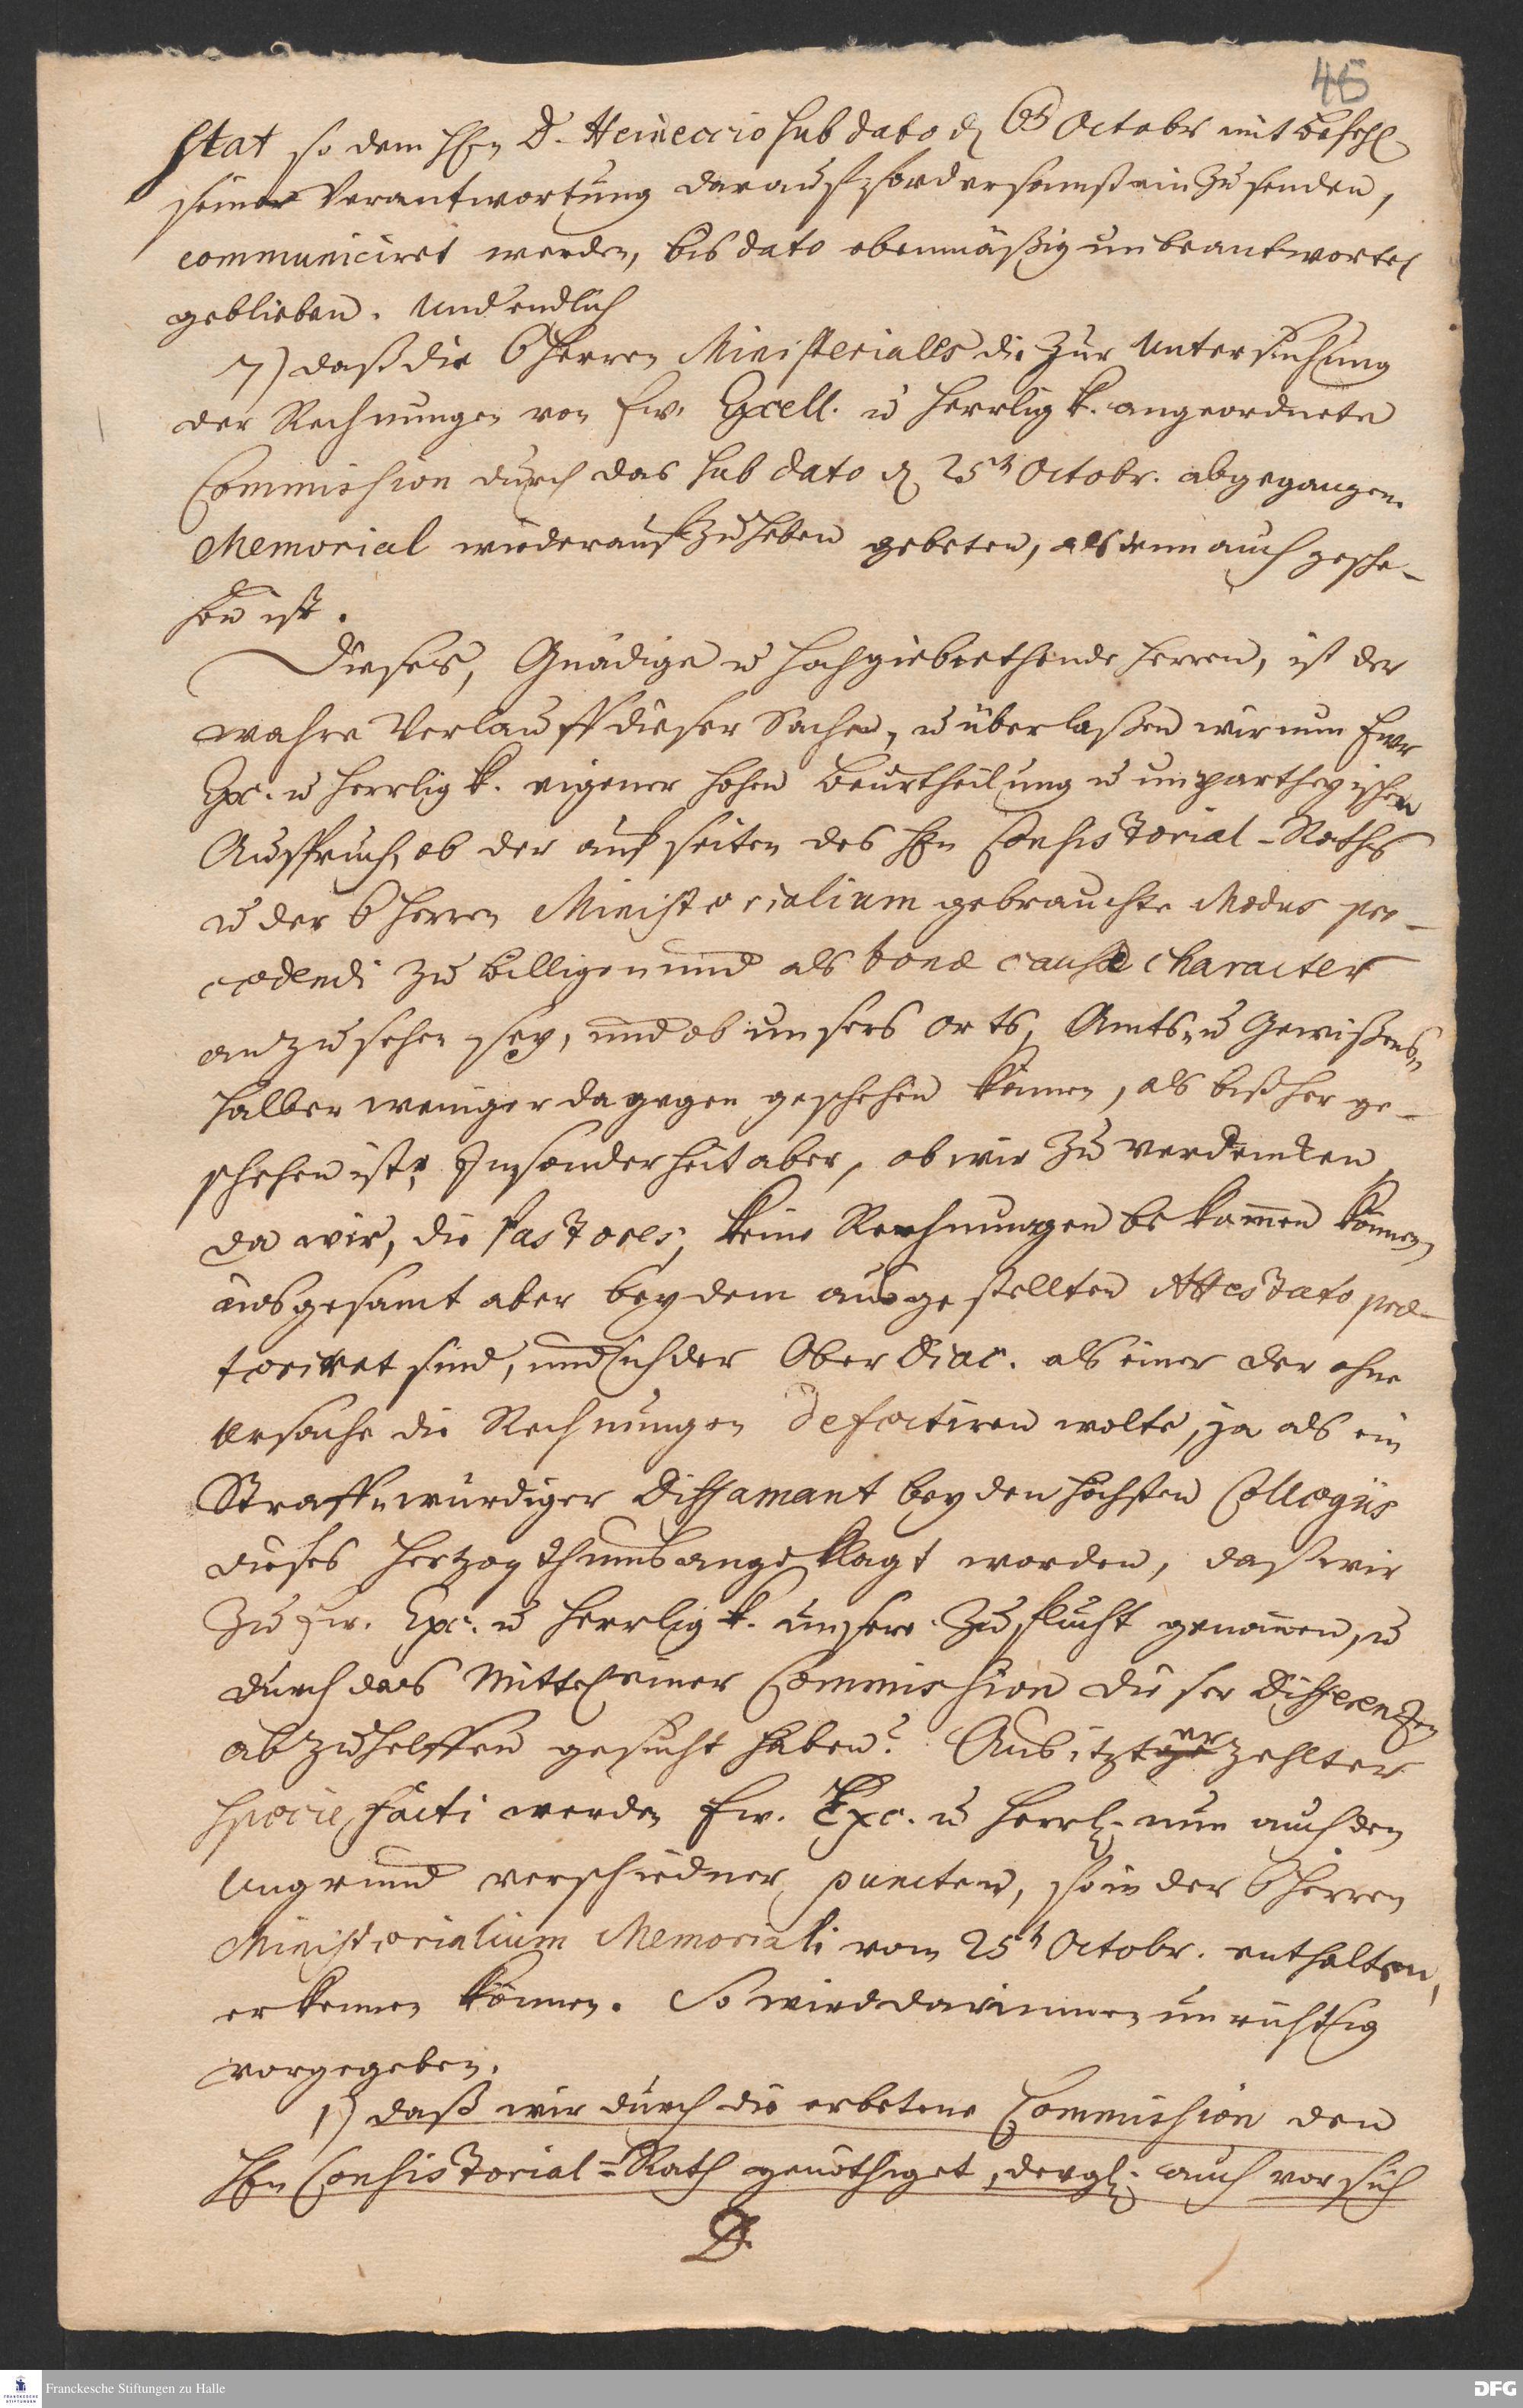 45
stat so dem HEn D. Heineccio sub dato d 6t Octobr mit Befehl
seiner Verantwortung darauf fordersamst einzusenden,
communiciret worden, bis dato ebenmäßig unbeantwortet
geblieben. Und endlich
7) daß die 6 Herren Ministeriales die zur Untersuchung
der Rechnungen von Ew. Excell. u Herrligk. angeordnete
Commission durch das sub dato d 25t Octobr. abgegangene
Memorial wiederaufzuheben gebeten, als denn auch gesche-
hen ist.
Dieses, Gnädige u hochgebiethende Herren, ist der
wahre Verlauff dieser Sachen, u überlaßen wir nun Ewr
Exc. u Herrligk. eigener hohen Beurtheilung u unpartheyischen
Ausspruch, ob der auf seiten des HEn Consistorial-Raths
u der 6 Herren Ministerialium gebrauchte Modus pro-
cedendi zu billigen und als bonæ causæ character
anzusehen sey, und ob unsers Orts, Amts- u Gewißens-
halber weniger dagegen geschehen können, als bißher ge-
schehen ist? Insonderheit aber, ob wir zu verdencken,
da wir, die Pastores, keine Rechnungen bekomen können,
insgesamt aber bey dem ausgestellten Attestato præ-
teriret sind, und sich der Ober Diac. als einer der ohne
Ursache die Rechnungen defectiren wolte, ja als ein
Straff-würdiger Diffamant bey den höchsten Collegiis
dieses Hertzogthums angeklagt worden, daß wir
zu Ew. Exc. u Herrligk. unsere Zuflucht genomen, u
durch das Mittel einer Commission dieser Differentzen
abzuhelffen gesucht haben? Aus itzt erzehlter
specie facti werden Ew. Exc. u Herrl. nun auch den
Ungrund verschiedner puncten, so in der 6 Herren
Ministerialium Memoriali vom 25t Octobr. enthalten,
erkennen können. So wird darinnen unrichtig
vorgegeben.
1) daß wir durch die erbetene Commission den
HEn Consistorial-Rath genöthiget, dergl. auch vor sich
D.
Franckesche Stiftungen zu Halle
DFG